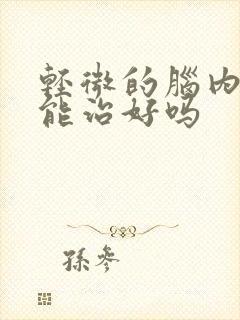 輕微的腦内
能治好吗
孫參